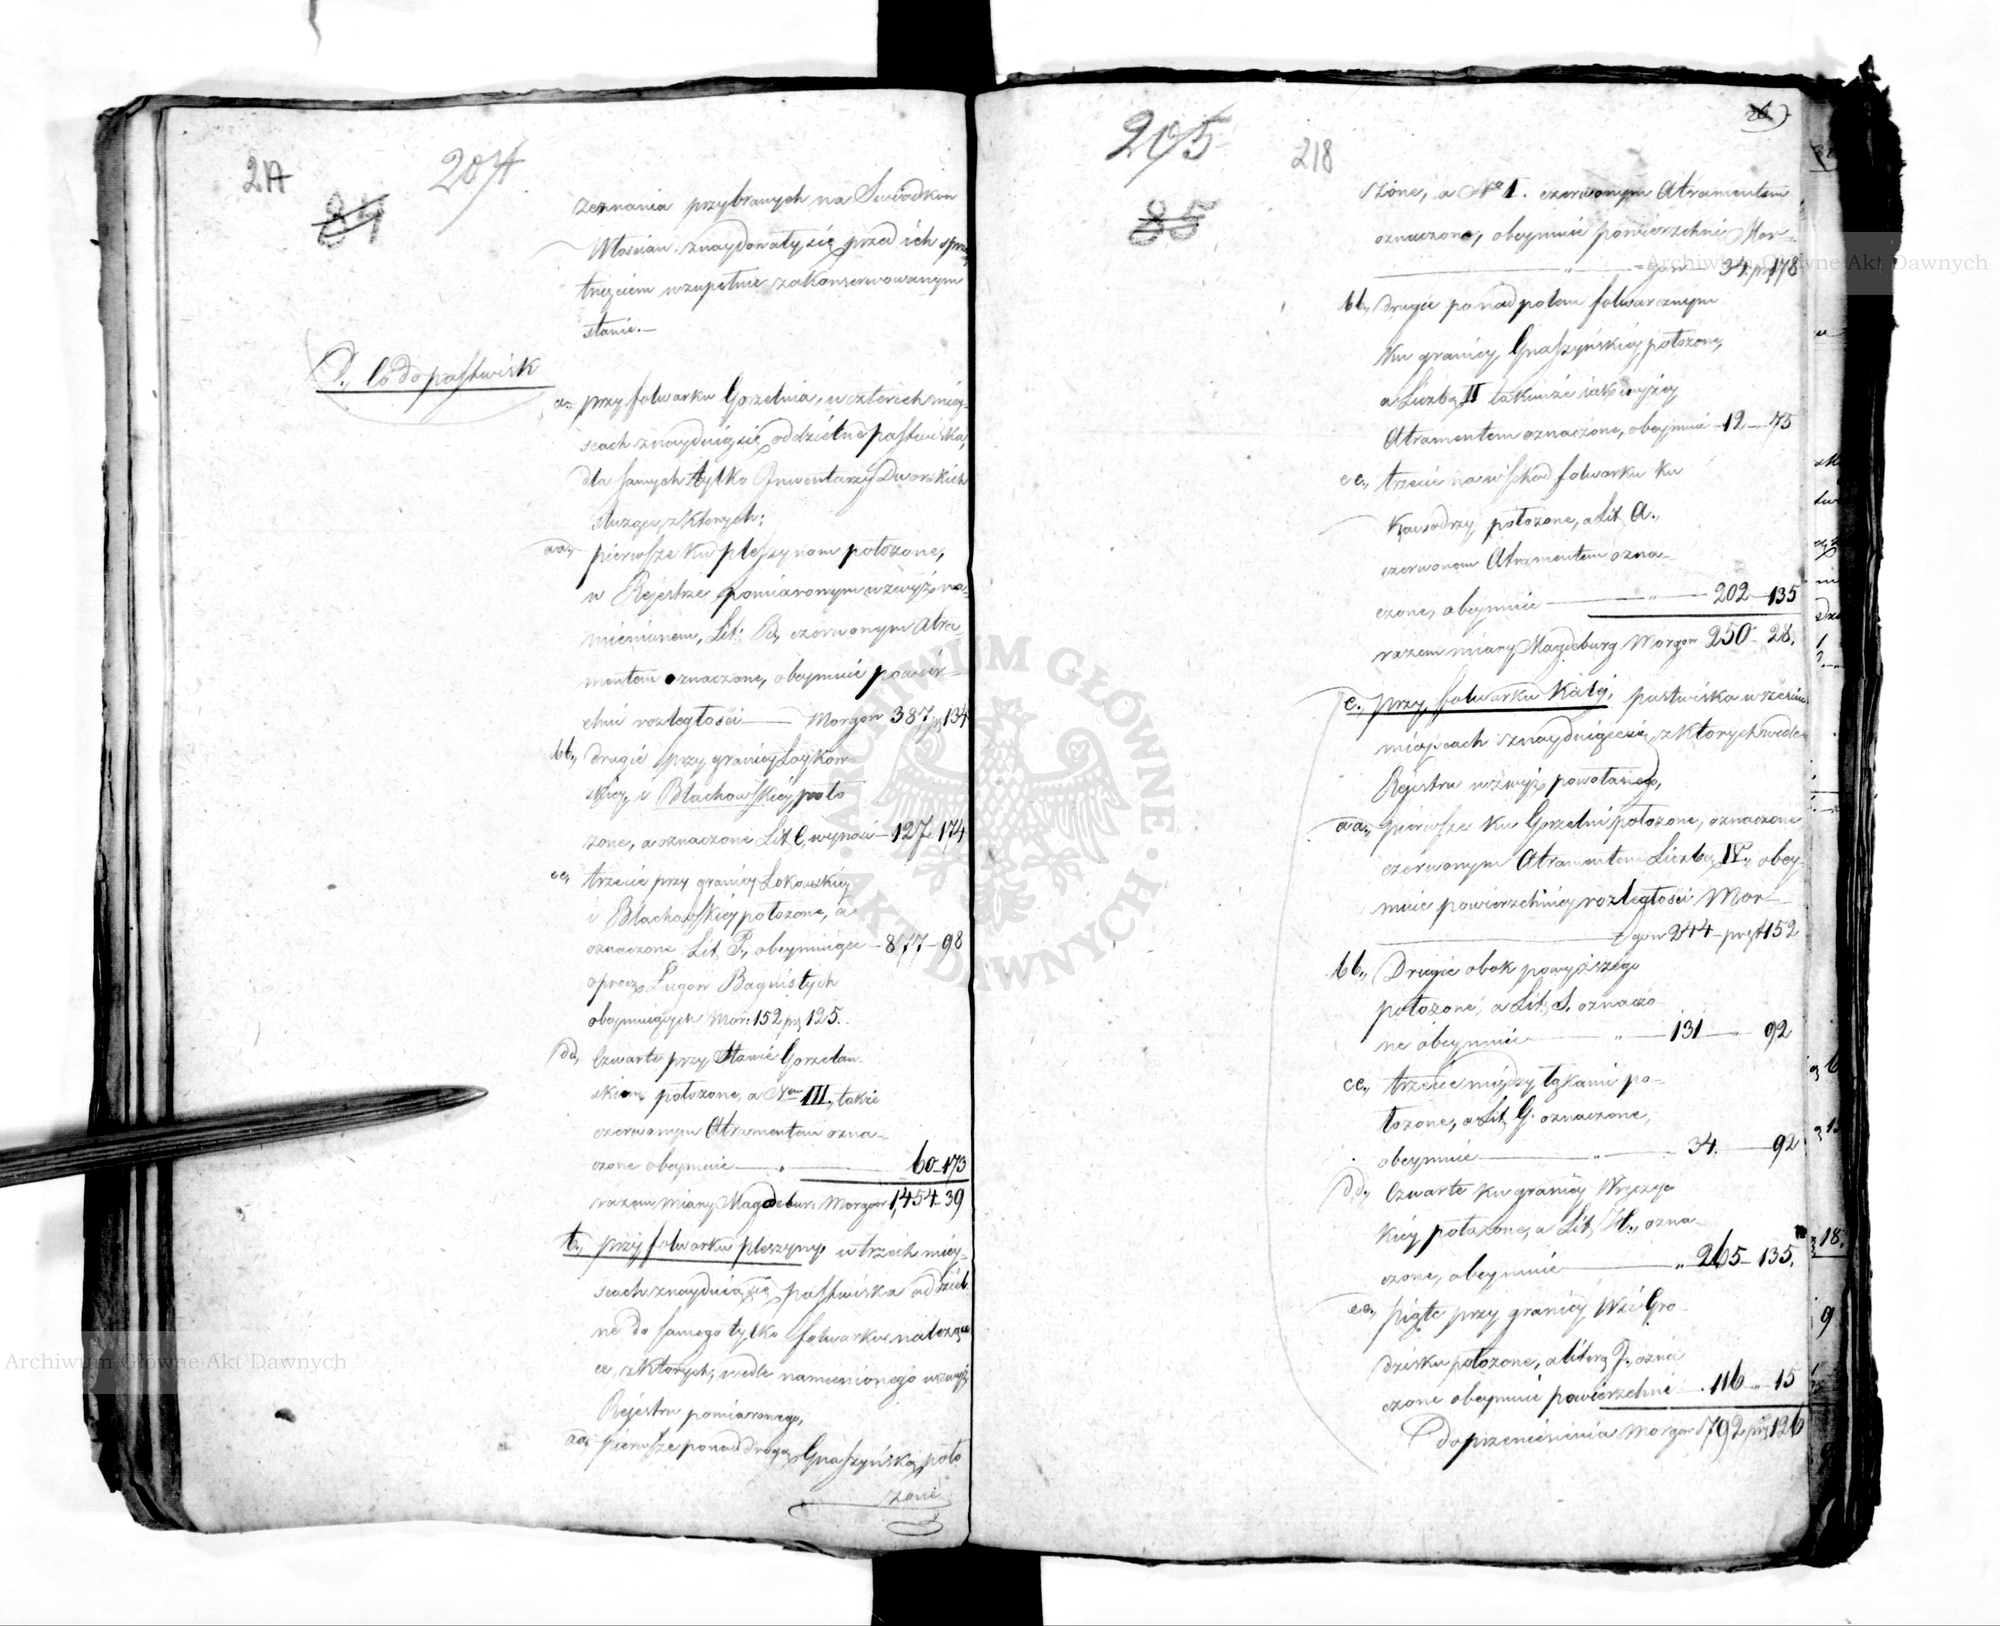 217
204
84
zeznania przybranych na Swiadkow
Włoscian, znaydowały się przed ich sprz
tnięciem w zupełnie zakonserwowanym
stanie.—
D., Co do pastwisk
a., przy folwarku Gorzelnia, w czterech miey-
scach znayduią się oddzielne pastwiska,
dla samych tylko Inwentarzy Dworskich
służące, z ktorych;
aa., pierwsze ku pleszynom położone,
w Rejestrze pomiarowym wzwyż na-
mienionem, Lit: B., czerwonym Atra-
mentem oznaczone, obeymuie powierz-
chni rozległości — Morgow 387 p 134
bb., drugie przy granicy Łoykow-
skiey i Blachowskiey poło
żone, a oznaczone Lit C, wynosi — 127 174
cc, trzecie przy granicy Łokowskiey
i Blachowskiey położone, a
oznaczone Lit P., obeymuiące — 877 — 98
oprocz Ługow Bagnistych
obeymuiących Mor: 152 pr 125.
dd, Czwarte przy Stawie Gorzelan-
skiem położone, a Nem III., także
czerwonym Atramentem ozna-
czone obeymuie — „ — 60 — 173
razem miary Magdebur: Morgow 1,454 — 39
b., przy folwarku pleszyny, w trzech miey-
scach znayduią się pastwiska oddziel
ne do samego tylko folwarku należą
ce, z ktorych, wedle namienionego wzwyż
Rejestru pomiarowego,
aa, pierwsze ponad drogą Gnaszyńską poło
żone
26
205
218
85
żone, a Nro I. czerwonym Atramentem
oznaczone, obeymuie powierzchni Mor-
„ — gow — 34 pr 178
bb., drugie ponad polem folwarcznym
ku granicy Gnaszyńskiey położone,
a Liczbą II takimże iak wyżey
Atramentem oznaczone, obeymuie — 12 — 75
cc., trzecie na wschod folwarku ku
Kawodrzy położone, a Lit A.,
czerwonem Atramentem ozna-
czone, obeymuie — „ — 202 — 135
razem miary Magdeburg Morgow 250 — 28.
c., przy folwarku Kąty, pastwiska w
mieyscach znayduiące się, z ktorych wedle
Rejestru wzwyż powołanego,
aa., pierwsze ku Gorzelni położone, oznaczone
czerwonym Atramentem Liczbą IV., obey-
muie powierzchniey rozległości Mor-
gow 244 — pręt 152
bb., Drugie obok powyższego
położone, a Lit S. oznaczo
ne obeymuie — „ — 131 — „ 92
cc., trzecie między łąkami po-
łożone, a Lit G. oznaczone,
obeymuie — „ — 34. — 92
dd, Czwarte ku granicy
kiey położone, a Lit H., ozna-
czone, obeymuie — „ 265 — 135.
ee., piąte przy granicy Wsi Gro-
dzisku położone, a literą J., ozna
czone obeymuie powierzchni . 116 „ 15
do przeniesienia Morgow 792 prę 126
18.
9
Archiwum Główne Akt Dawnych
Archiwum Główne Akt Dawnych
ARCHIWUM GŁÓWNE · AKT DAWNYCH ·